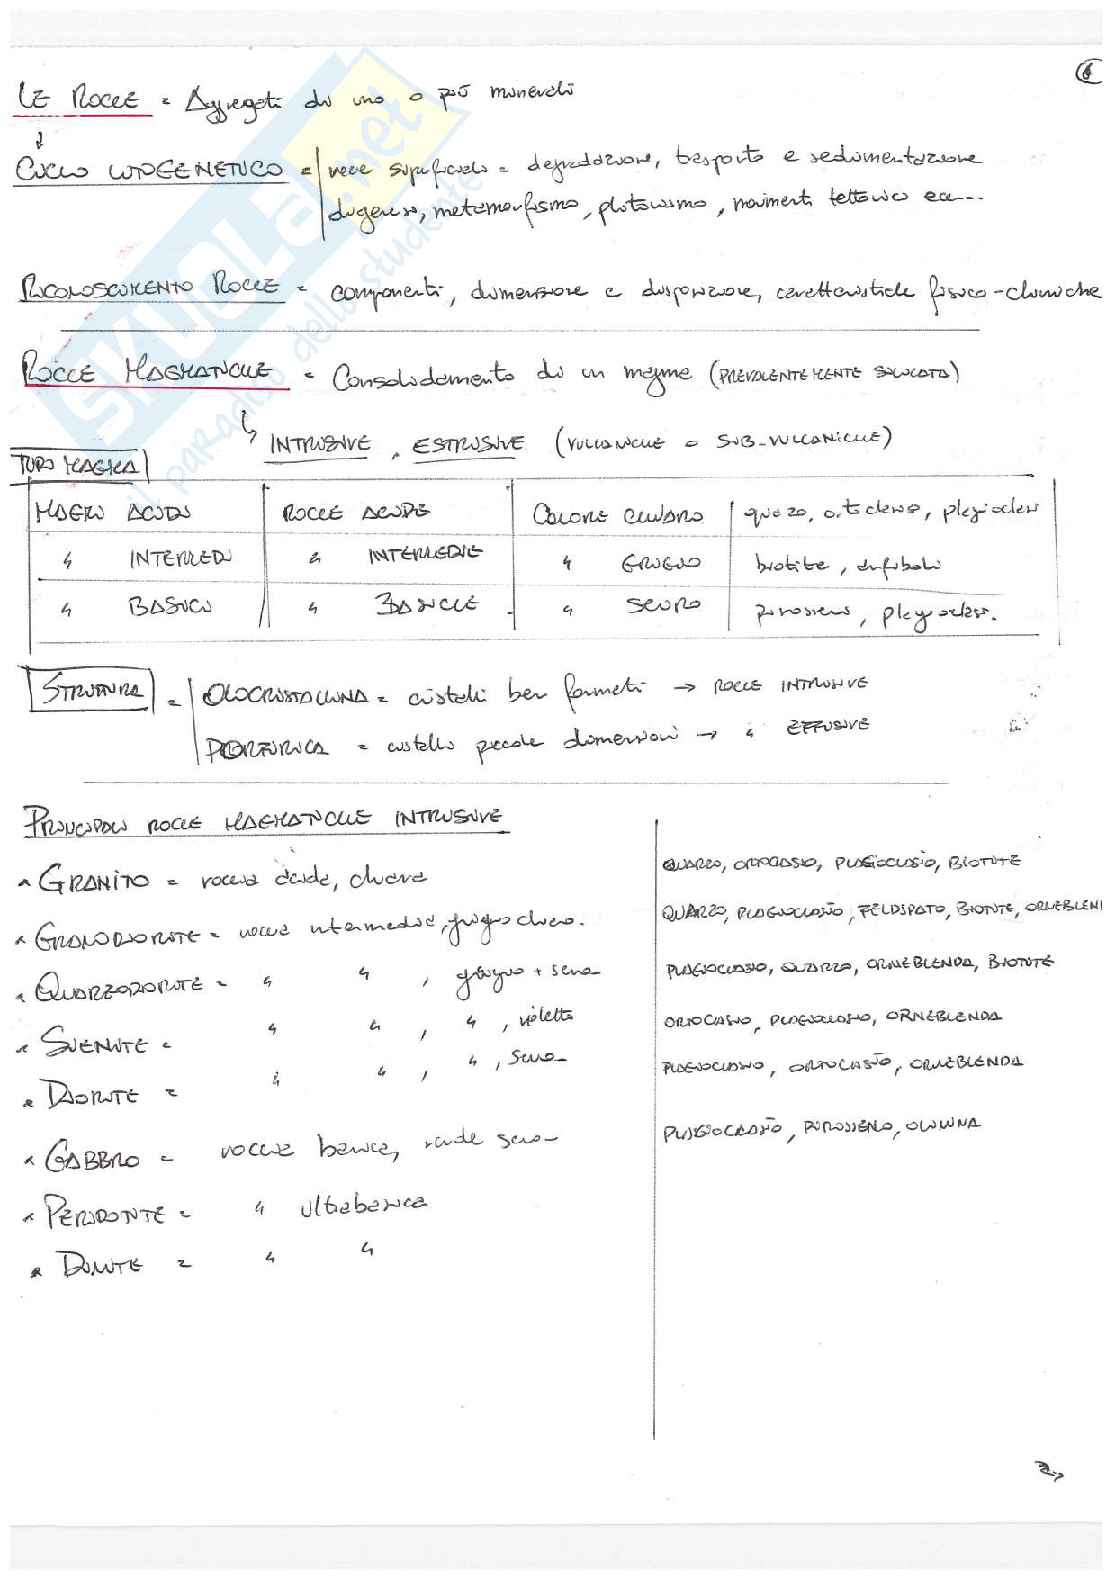 6
LE ROCCE = Aggregati di uno o più minerali
CICLO LITOGENETICO = vece superficiale = degradazione, trasporto e sedimentazione
diagenesi, metamorfismo, plutonismo, movimenti tettonici ecc...
RICONOSCIMENTO ROCCE = componenti, dimensione e disposizione, caratteristiche fisico-chimiche
ROCCE MAGMATICHE = Consolidamento di un magma (PREVALENTEMENTE SILICATA)
INTRUSIVE, ESTRUSIVE (VULCANICHE = SUB-VULCANICHE)
TIPO MAGMA
MAGMI ACIDI ROCCE ACIDE COLORE CHIARO quarzo, ortoclasio, plagioclasi
" INTERMEDI " INTERMEDIE " GRIGIO biotite, anfiboli
" BASICI " BASICHE " SCURO pirosseni, plagioclasi.
STRUTTURA = OLOCRISTALLINA = cristalli ben formati → ROCCE INTRUSIVE
PORFIRICA = cristalli piccole dimensioni → " EFFUSIVE
PRINCIPALI ROCCE MAGMATICHE INTRUSIVE
GRANITO = roccia acida, chiara QUARZO, ORTOCLASIO, PLAGIOCLASIO, BIOTITE
GRANODIORITE = roccia intermedia, grigio chiaro. QUARZO, PLAGIOCLASIO, FELDSPATO, BIOTITE, ORNEBLEN
QUARZODIORITE = " " , grigio + scuro PLAGIOCLASIO, QUARZO, ORNEBLENDA, BIOTITE
SIENITE = " " , " , violetto ORTOCLASIO, PLAGIOCLASIO, ORNEBLENDA
DIORITE = " " , " , scuro PLAGIOCLASIO, ORTOCLASIO, ORNEBLENDA
GABBRO = roccia basica, verde scuro PLAGIOCLASIO, PIROSSENO, OLIVINA
PERIDOTITE = " ultrabasica
DUNITE = " "
SKUOLA.net
il paradiso dello studente